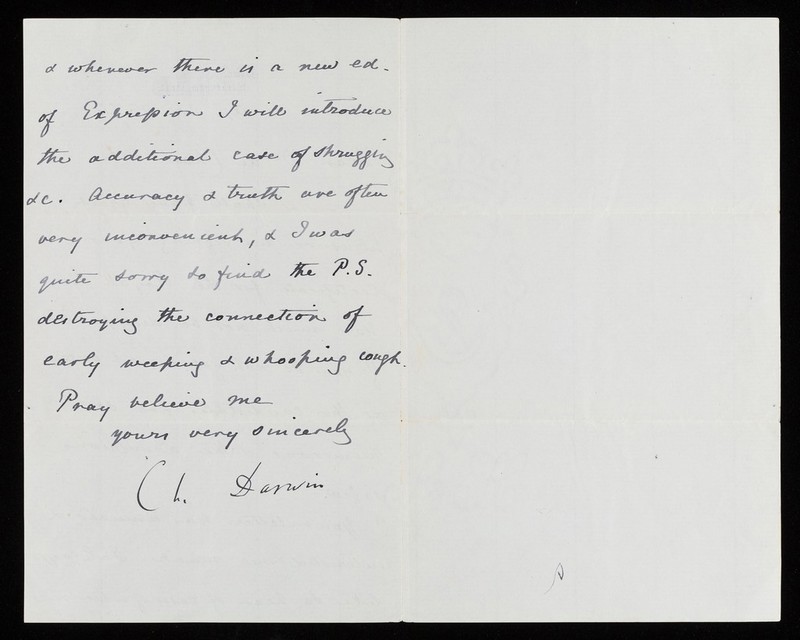 & whenever there is a new ed.
of Expression I will introduce
the additional case of shrugging
&c. Accuracy & truth are often
very inconvenient, & I was
quite sorry to find the P.S.
destroying the connection of
early weeping & whooping cough.
Pray believe me
yours very sincerely
Ch. Darwin